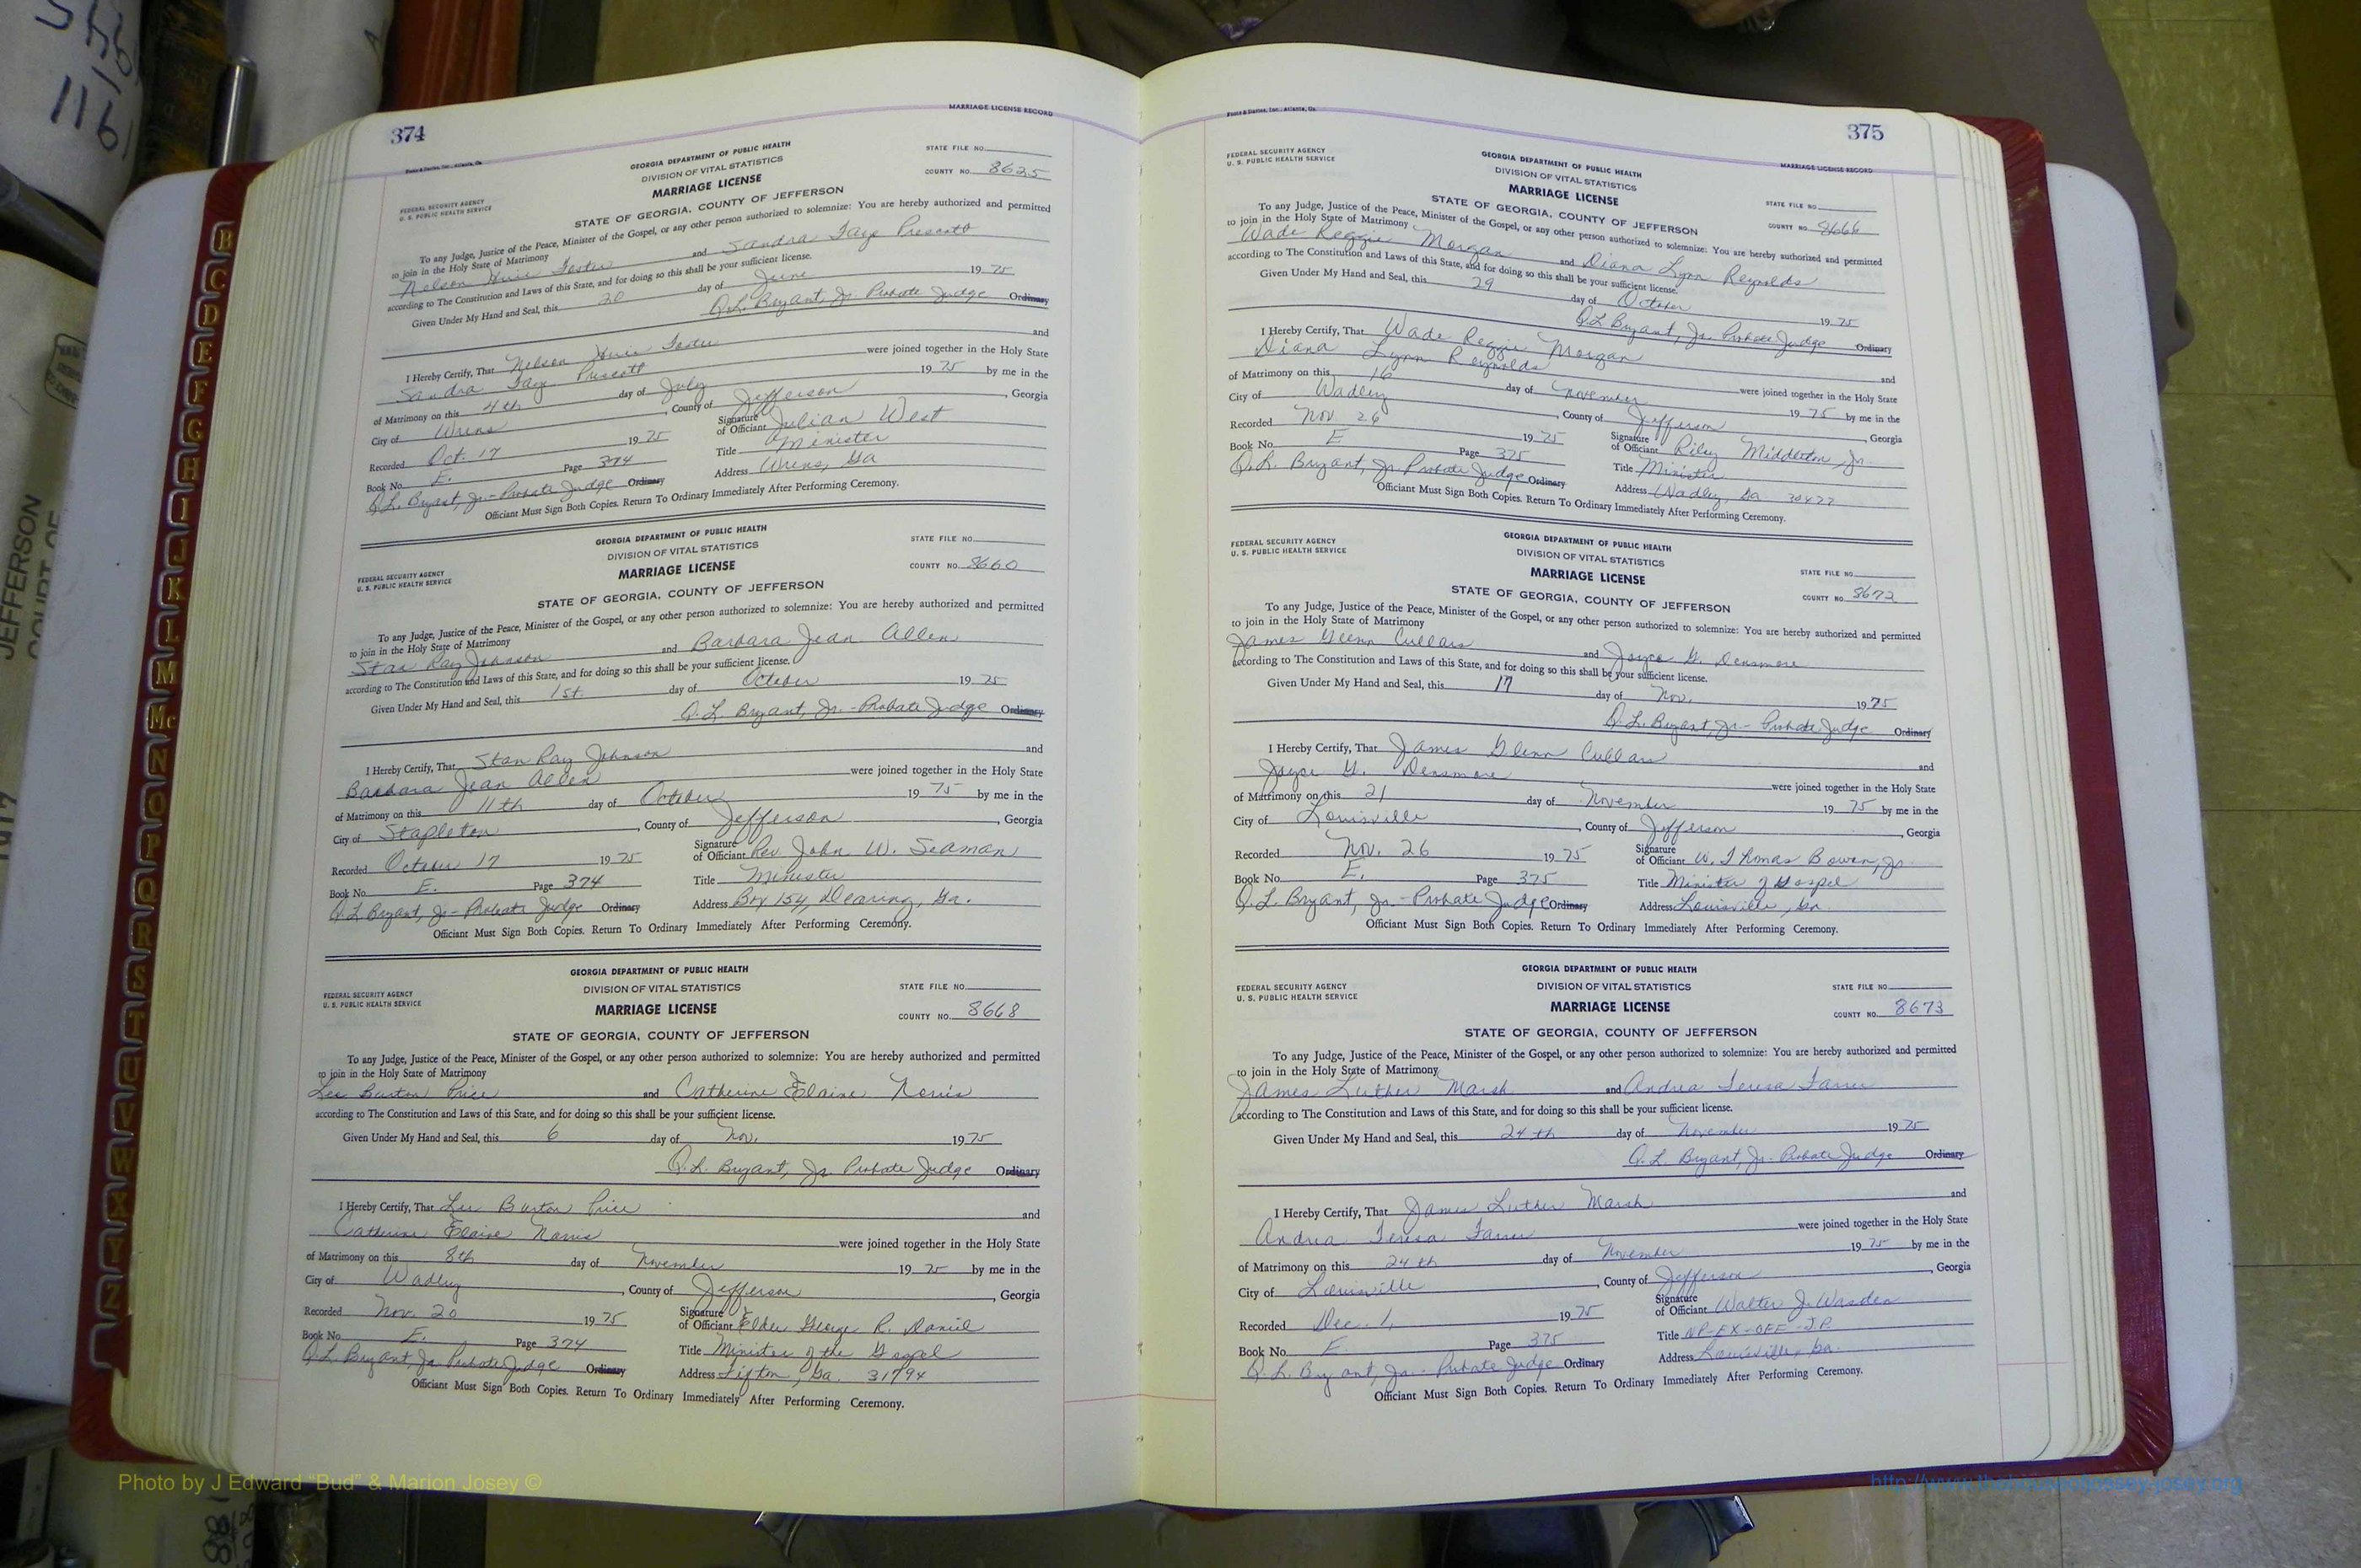 374
MARRIAGE LICENSE RECORD
GEORGIA DEPARTMENT OF PUBLIC HEALTH
DIVISION OF VITAL STATISTICS
MARRIAGE LICENSE
STATE OF GEORGIA, COUNTY OF JEFFERSON
FEDERAL SECURITY AGENCY
U. S. PUBLIC HEALTH SERVICE
STATE FILE NO.
COUNTY NO. 8625
To any Judge, Justice of the Peace, Minister of the Gospel, or any other person authorized to solemnize: You are hereby authorized and permitted
to join in the Holy State of Matrimony
Nelson Foster and Sandra Faye Prescott
according to The Constitution and Laws of this State, and for doing so this shall be your sufficient license.
Given Under My Hand and Seal, this 20 day of June 19 75
Q.L. Bryant, Jr. Probate Judge Ordinary
I Hereby Certify, That Nelson Foster and
Sandra Faye Prescott were joined together in the Holy State
of Matrimony on this 4th day of July 19 75 by me in the
City of Wrens, County of Jefferson, Georgia
Recorded Oct. 17 19 75 Signature of Officiant Julian West
Book No. E. Page 374 Title Minister
Q.L. Bryant, Jr-Probate Judge Ordinary Address Wrens, Ga
Officiant Must Sign Both Copies. Return To Ordinary Immediately After Performing Ceremony.
GEORGIA DEPARTMENT OF PUBLIC HEALTH
DIVISION OF VITAL STATISTICS
MARRIAGE LICENSE
STATE OF GEORGIA, COUNTY OF JEFFERSON
FEDERAL SECURITY AGENCY
U. S. PUBLIC HEALTH SERVICE
STATE FILE NO.
COUNTY NO. 8660
To any Judge, Justice of the Peace, Minister of the Gospel, or any other person authorized to solemnize: You are hereby authorized and permitted
to join in the Holy State of Matrimony
Stan Ray Johnson and Barbara Jean Allen
according to The Constitution and Laws of this State, and for doing so this shall be your sufficient license.
Given Under My Hand and Seal, this 1st. day of October 19 75
Q. L. Bryant, Jr. - Probate Judge Ordinary
I Hereby Certify, That Stan Ray Johnson and
Barbara Jean Allen were joined together in the Holy State
of Matrimony on this 11th day of October 19 75 by me in the
City of Stapleton, County of Jefferson, Georgia
Recorded October 17 19 75 Signature of Officiant Rev. John W. Seaman
Book No. E. Page 374 Title Minister
Q L Bryant, Jr-Probate Judge Ordinary Address Box 154, Dearing, Ga.
Officiant Must Sign Both Copies. Return To Ordinary Immediately After Performing Ceremony.
GEORGIA DEPARTMENT OF PUBLIC HEALTH
DIVISION OF VITAL STATISTICS
MARRIAGE LICENSE
STATE OF GEORGIA, COUNTY OF JEFFERSON
FEDERAL SECURITY AGENCY
U. S. PUBLIC HEALTH SERVICE
STATE FILE NO.
COUNTY NO. 8668
To any Judge, Justice of the Peace, Minister of the Gospel, or any other person authorized to solemnize: You are hereby authorized and permitted
to join in the Holy State of Matrimony
Lee Burton Price and Catherine Elaine Norris
according to The Constitution and Laws of this State, and for doing so this shall be your sufficient license.
Given Under My Hand and Seal, this 6 day of Nov. 19 75
Q.L. Bryant, Jr. Probate Judge Ordinary
I Hereby Certify, That Lee Burton Price and
Catherine Elaine Norris were joined together in the Holy State
of Matrimony on this 8th day of November 19 75 by me in the
City of Wadley, County of Jefferson, Georgia
Recorded Nov. 20 19 75 Signature of Officiant Elder George R. Daniel
Book No. E. Page 374 Title Minister of the Gospel
Q L Bryant, Jr Probate Judge Ordinary Address Tifton, Ga. 31794
Officiant Must Sign Both Copies. Return To Ordinary Immediately After Performing Ceremony.
375
MARRIAGE LICENSE RECORD
FEDERAL SECURITY AGENCY
U. S. PUBLIC HEALTH SERVICE
GEORGIA DEPARTMENT OF PUBLIC HEALTH
DIVISION OF VITAL STATISTICS
MARRIAGE LICENSE
STATE OF GEORGIA, COUNTY OF JEFFERSON
STATE FILE NO.
COUNTY NO. 8666
To any Judge, Justice of the Peace, Minister of the Gospel, or any other person authorized to solemnize: You are hereby authorized and permitted
to join in the Holy State of Matrimony
Wade Reggie Morgan and Diana Lynn Reynolds
according to The Constitution and Laws of this State, and for doing so this shall be your sufficient license.
Given Under My Hand and Seal, this 29 day of October 19 75
Q L Bryant, Jr. Probate Judge Ordinary
I Hereby Certify, That Wade Reggie Morgan and
Diana Lynn Reynolds were joined together in the Holy State
of Matrimony on this 16 day of November 19 75 by me in the
City of Wadley, County of Jefferson, Georgia
Recorded Nov. 26 19 75 Signature of Officiant Riley Middleton, Jr.
Book No. E Page 375 Title Minister
Q.L. Bryant, Jr. Probate Judge Ordinary Address Wadley, Ga 30477
Officiant Must Sign Both Copies. Return To Ordinary Immediately After Performing Ceremony.
FEDERAL SECURITY AGENCY
U. S. PUBLIC HEALTH SERVICE
GEORGIA DEPARTMENT OF PUBLIC HEALTH
DIVISION OF VITAL STATISTICS
MARRIAGE LICENSE
STATE OF GEORGIA, COUNTY OF JEFFERSON
STATE FILE NO.
COUNTY NO. 8672
To any Judge, Justice of the Peace, Minister of the Gospel, or any other person authorized to solemnize: You are hereby authorized and permitted
to join in the Holy State of Matrimony
James Glenn Cullars and Joyce G. Densmore
according to The Constitution and Laws of this State, and for doing so this shall be your sufficient license.
Given Under My Hand and Seal, this 17 day of Nov. 19 75
Q.L. Bryant, Jr - Probate Judge Ordinary
I Hereby Certify, That James Glenn Cullars and
Joyce G. Densmore were joined together in the Holy State
of Matrimony on this 21 day of November 19 75 by me in the
City of Louisville, County of Jefferson, Georgia
Recorded Nov. 26 19 75 Signature of Officiant W. Thomas Bowen, Jr.
Book No. E. Page 375 Title Minister of Gospel
Q. L. Bryant, Jr - Probate Judge Ordinary Address Louisville, Ga.
Officiant Must Sign Both Copies. Return To Ordinary Immediately After Performing Ceremony.
FEDERAL SECURITY AGENCY
U. S. PUBLIC HEALTH SERVICE
GEORGIA DEPARTMENT OF PUBLIC HEALTH
DIVISION OF VITAL STATISTICS
MARRIAGE LICENSE
STATE OF GEORGIA, COUNTY OF JEFFERSON
STATE FILE NO.
COUNTY NO. 8673
To any Judge, Justice of the Peace, Minister of the Gospel, or any other person authorized to solemnize: You are hereby authorized and permitted
to join in the Holy State of Matrimony
James Luther Marsh and Andrea Teresa
according to The Constitution and Laws of this State, and for doing so this shall be your sufficient license.
Given Under My Hand and Seal, this 24th day of November 19 75
Q. L. Bryant, Jr. Probate Judge Ordinary
I Hereby Certify, That James Luther Marsh and
Andrea Teresa were joined together in the Holy State
of Matrimony on this 24th day of November 19 75 by me in the
City of Louisville, County of Jefferson, Georgia
Recorded Dec. 1, 19 75 Signature of Officiant Walter J. Wasden
Book No. E. Page 375 Title NP-EX-OFF-J.P.
Q. L. Bryant, Jr. - Probate Judge Ordinary Address Louisville, Ga.
Officiant Must Sign Both Copies. Return To Ordinary Immediately After Performing Ceremony.
B
C
D
E
F
G
H
I
J
K
L
M
Mc
N
O
P
Q
R
S
T
U
V
W
X
Y
Z
1161
JEFFERSON
COURT OF
Photo by J Edward “Bud” & Marion Josey ©